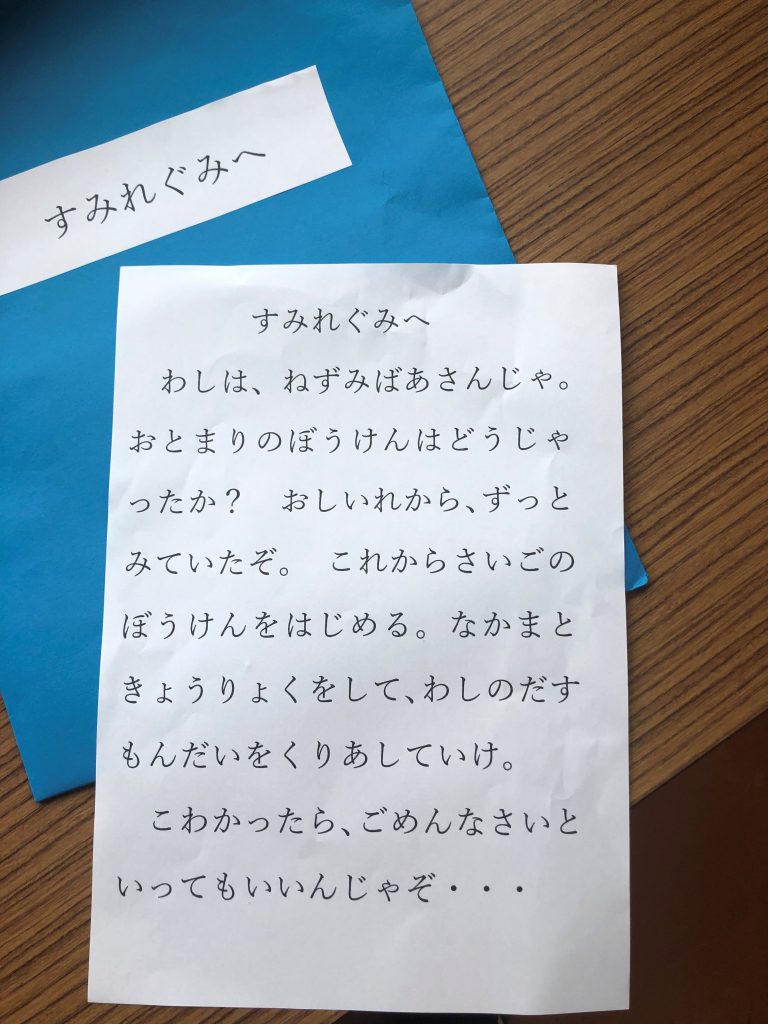 すみれぐみへ
すみれぐみへ
わしは、ねずみばあさんじゃ。
おとまりのぼうけんはどうじゃ
ったか？　おしいれから、ずっと
みていたぞ。　これからさいごの
ぼうけんをはじめる。なかまと
きょうりょくをして、わしのだす
もんだいをくりあしていけ。
こわかったら、ごめんなさいと
いってもいいんじゃぞ・・・